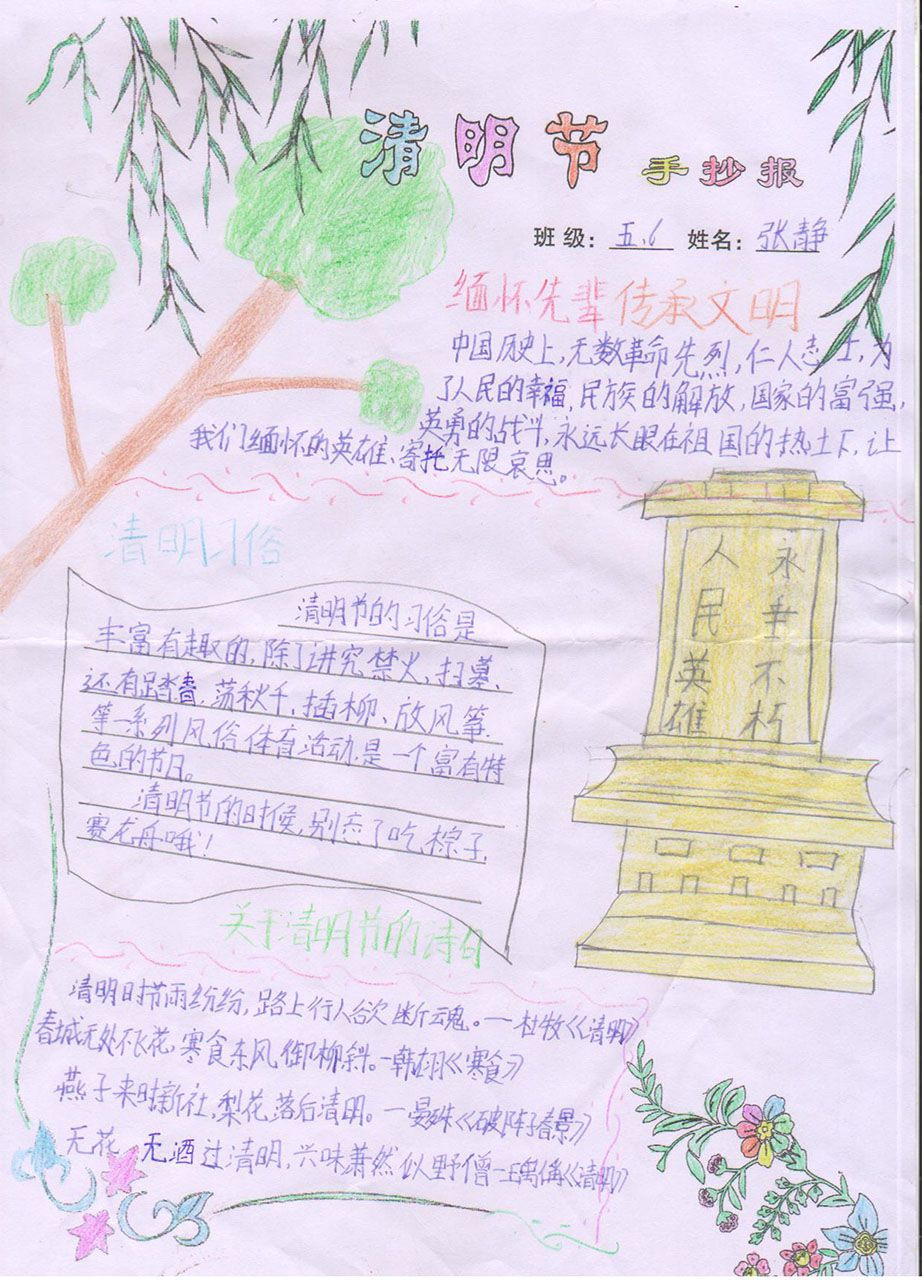 清明节 手抄报
班级：五.6 姓名：张静
缅怀先辈传承文明
中国历史上，无数革命先烈，仁人志士，为
了人民的幸福，民族的解放，国家的富强，
英勇的战斗，永远长眼在祖国的热土下，让
我们缅怀的英雄、寄托无限哀思。
清明习俗
清明节的习俗是
丰富有趣的，除了讲究禁火、扫墓、
还有踏青，荡秋千，插柳、放风筝
等一系列风俗体育活动.是一个富有特
色的节日。
清明节的时候，别忘了吃，粽子，
赛龙舟哦！
永垂不朽
人民英雄
关于清明节的诗句
清明时节雨纷纷，路上行人欲断魂。—杜牧《清明》
春城无处不飞花，寒食东风御柳斜。—韩翃《寒食》
燕子来时新社，梨花落后清明。—晏殊《破阵子春景》
无花 无酒过清明，兴味萧然似野僧—王禹偁《清明》